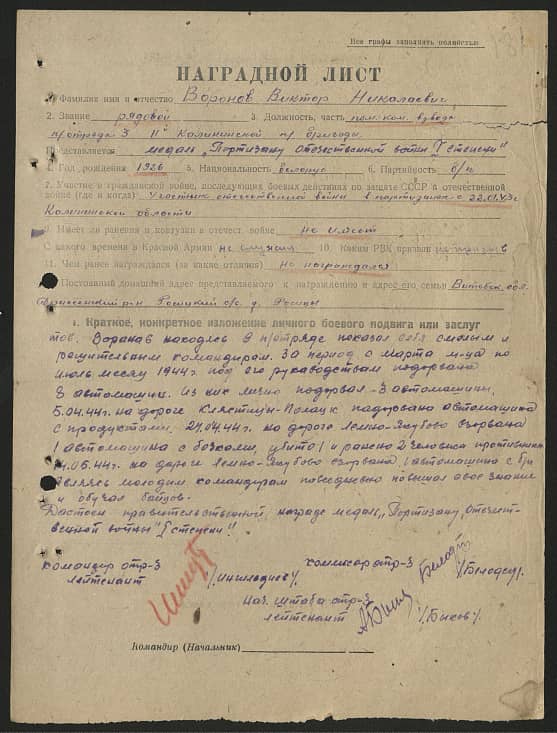 Все графы заполнять полностью
НАГРАДНОЙ ЛИСТ
1. Фамилия имя и отчество Воронов Виктор Николаевич
2. Звание рядовой 3. Должность, часть пом. ком. взвода
п/отряда 3 11й Калининской п/ бригады.
Представляется медаль „Портизану Отечественной войны I степени"
4. Год рождения 1926 5. Национальность белорус 6. Партийность б/п
7. Участие в гражданской войне, последующих боевых действиях по защите СССР и отечественной
войне (где и когда) Участник отечественной войны в партизанах с 22.01.43г
Калининской области
9. Имеет ли ранения и контузии в отечест. войне не имеет
С какого времени в Красной Армии не служил 10. Каким РВК призван не призыв
11. Чем ранее награждался (за какие отличия) не награждался
Постоянный домашний адрес представляемого к награждению и адрес его семьи Витебск. обл.
р-н с/с. д.
1. Краткое, конкретное изложение личного боевого подвига или заслуг
тов. Воранав находясь в п/отряде показал себя смелым и
решительным командиром. За период с марта м-ца по
июль месяц 1944г. под его руководствам подорвана
8 автомашин. Из них лично подорвал -3 автомашины.
5.04.44г. на дороге Клястицы-Полоцк подорвана автомашина
с продуктами. 24.04.44г. на дороге Лемно-Якубово взорвана
1 автомашина с бочками, убито 1 и ранено 2 человека противника
.06.44г. на дороге Лемно-Якубово взорвана 1 автомашина с
являясь молодым командирам повседневно повышал свое знание
и обучал бойцов.
Достоин правительственной награде медаль „Портизану Отечест-
венной войны" I степени".
командир отр-3 комиссар отр-3
лейтенант
Нач. штаба отр-3
лейтенант /Быков/.
Командир (Начальник)